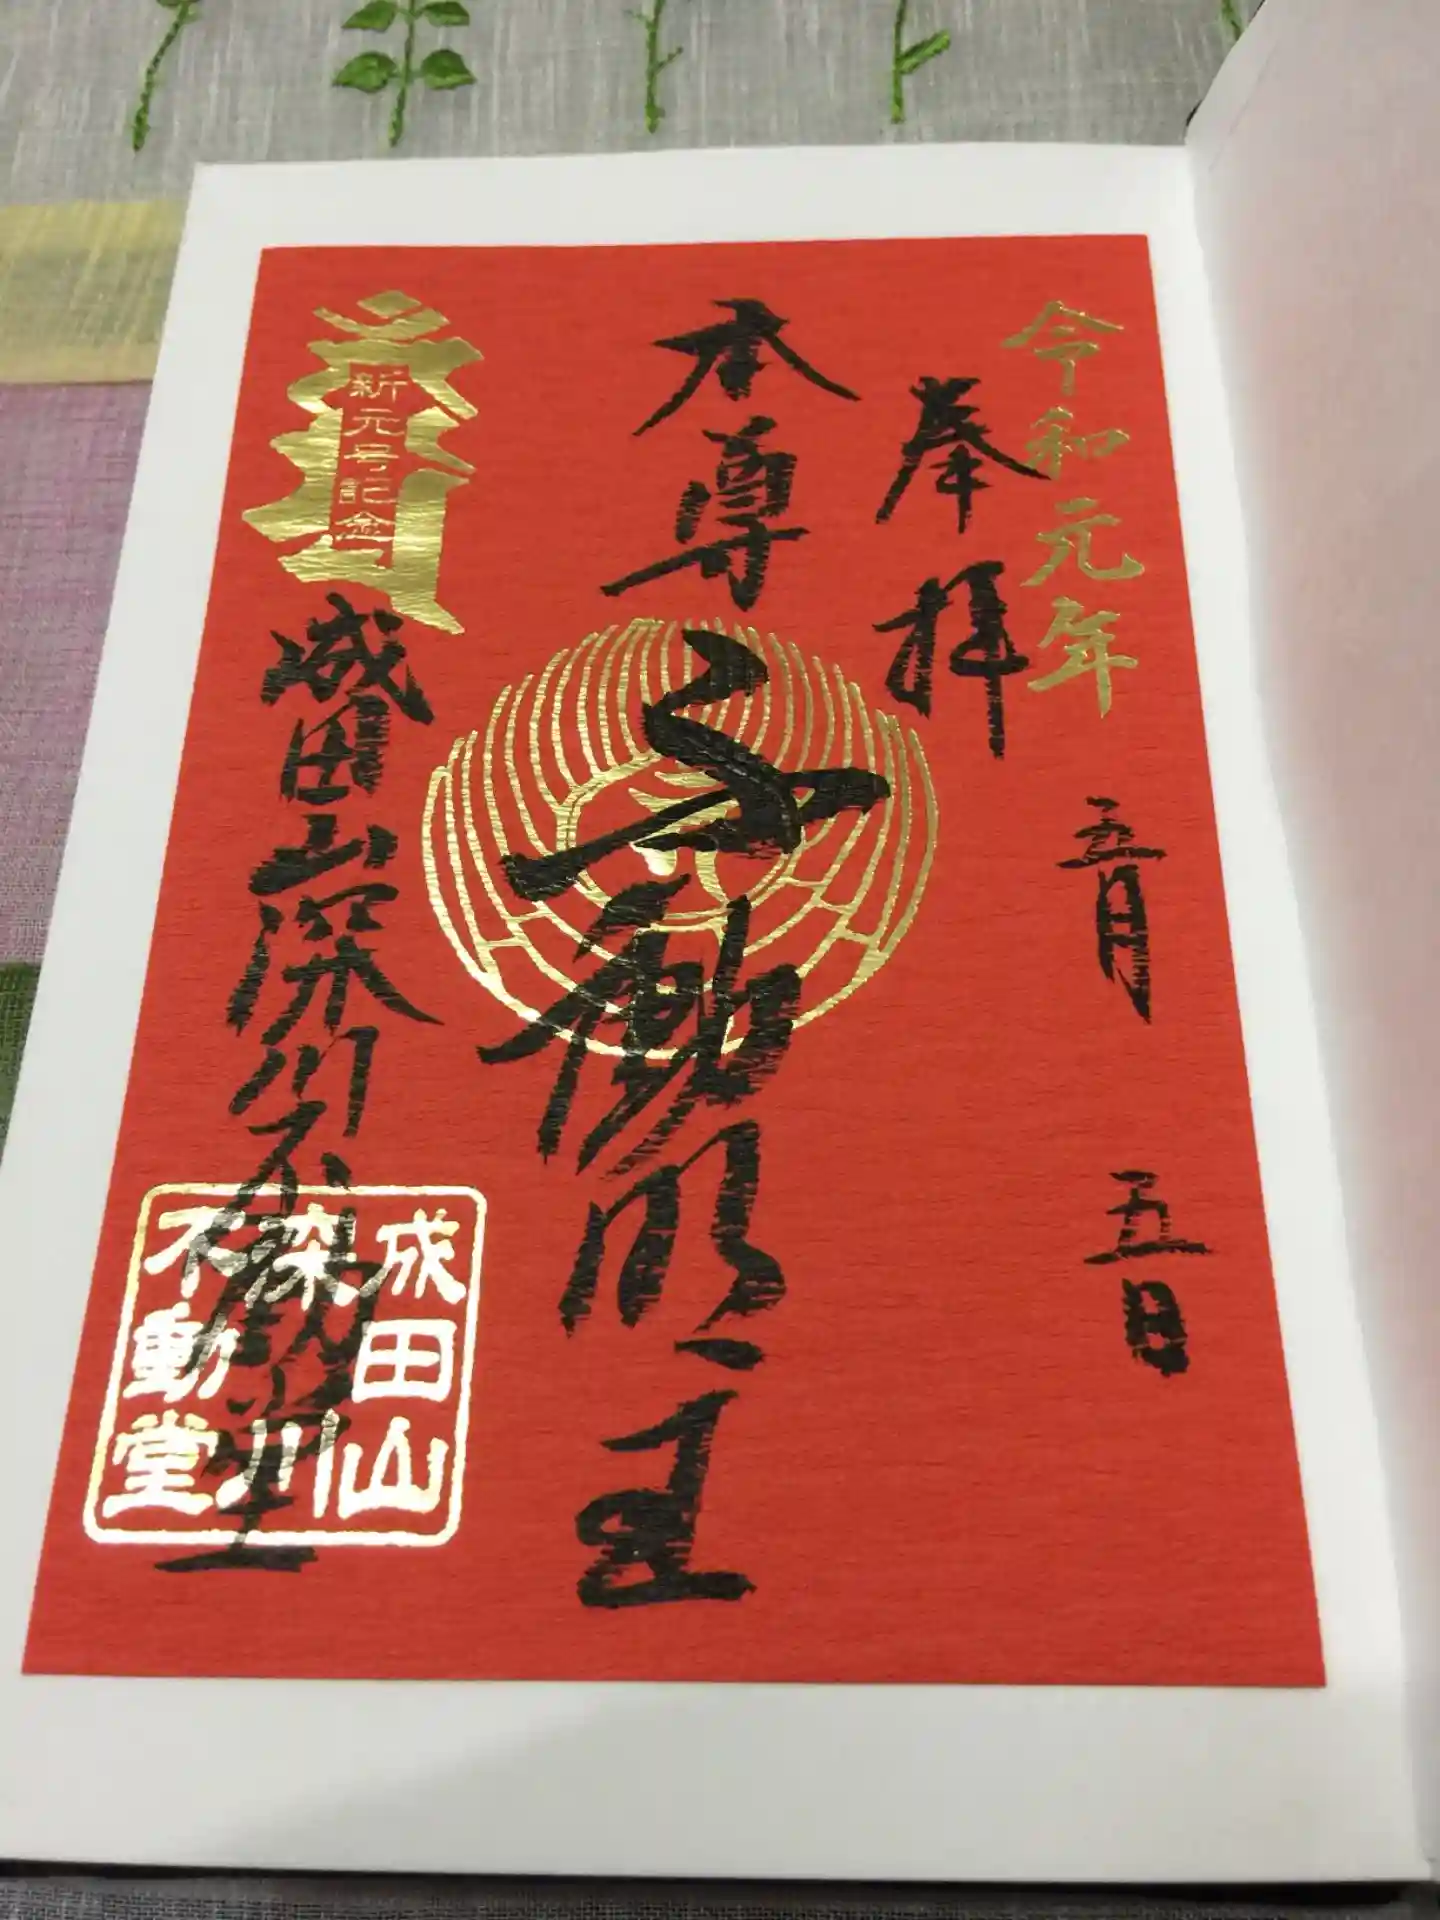 令和元年
五月五日
奉拝
本尊不動明王
新元号記念
成田山深川不動堂
成田山
深川
不動堂